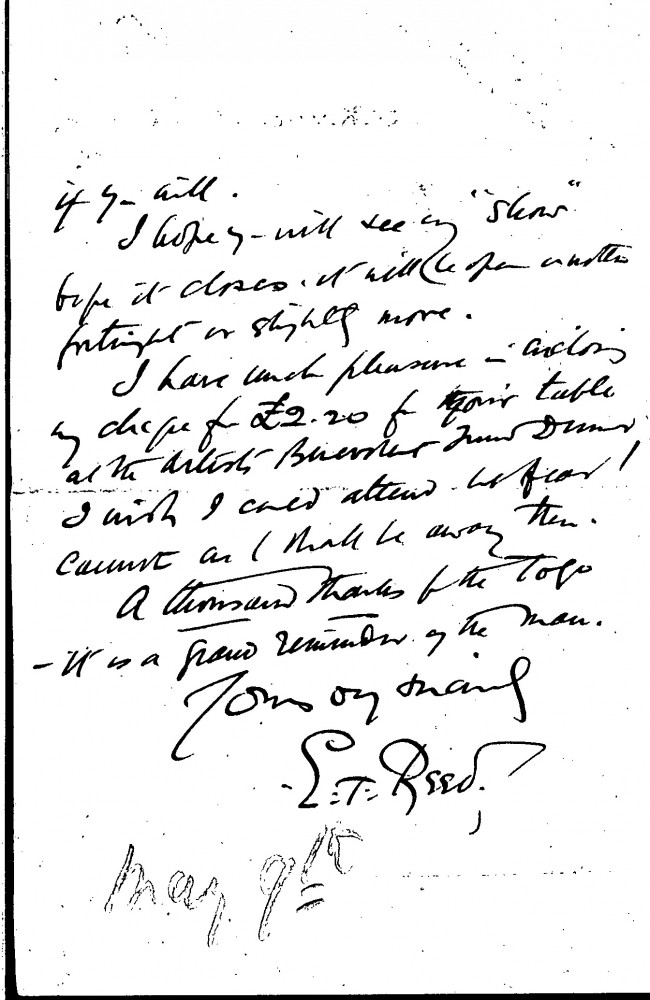 if you will.
I hope you will see my "show"
before it closes. it will be open another
fortnight or slightly more.
I have much pleasure in enclosing
my cheque for £2.20 for your table
at the Artists Benevolent Fund Dinner
I wish I could attend but fear I
cannot as I shall be away then.
A thousand thanks for the Togo
- it is a grand reminder of the man.
Yours very sincerely
E.T. Reed.
May 9th